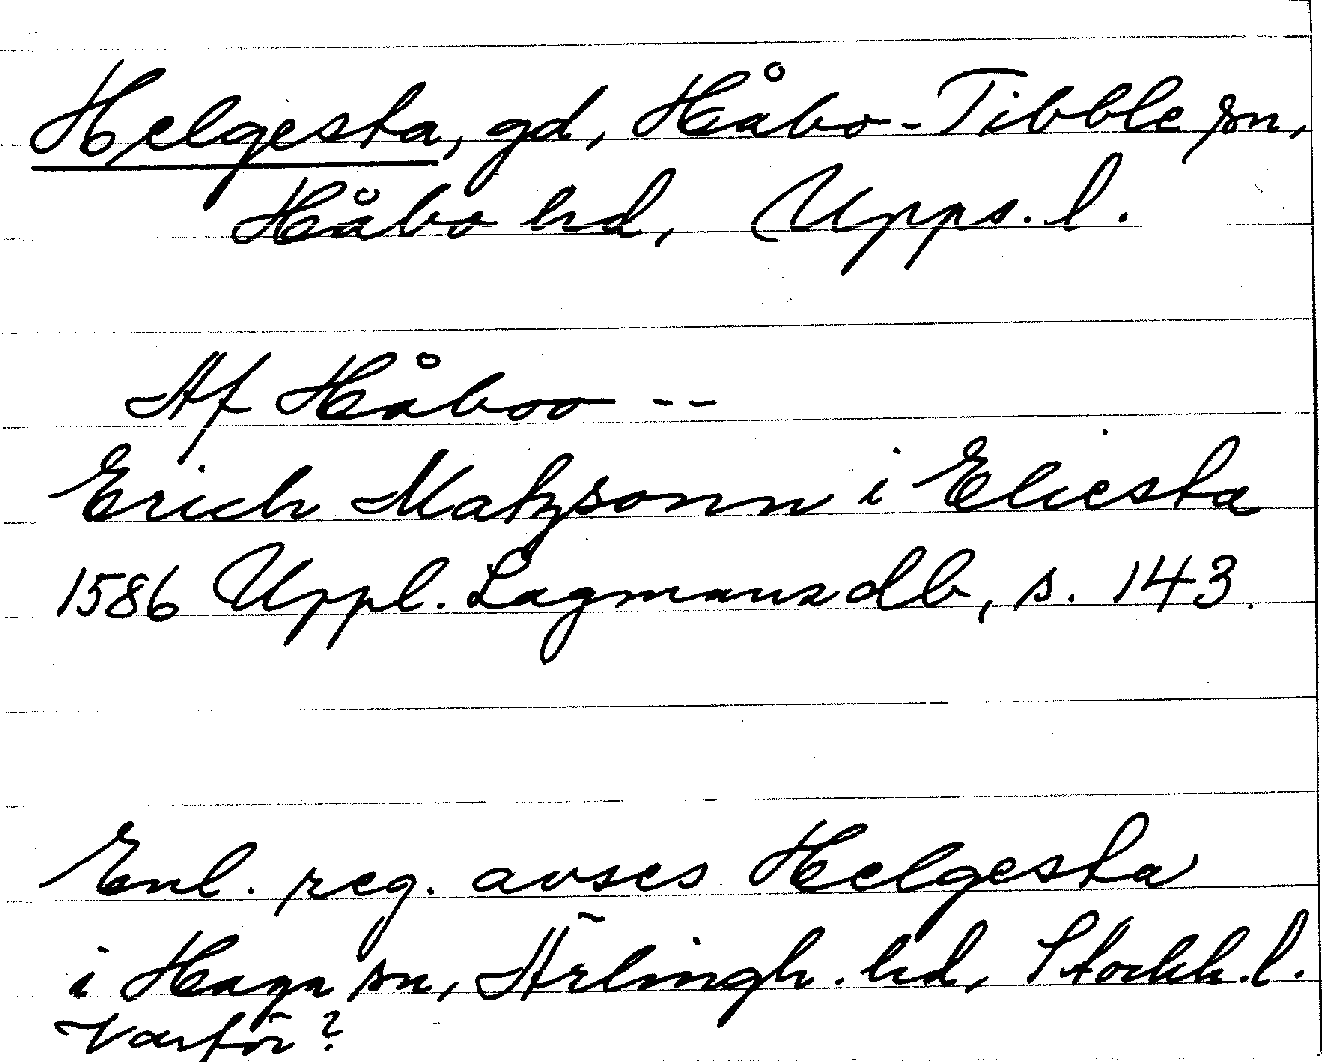 Helgesta, gd, Håbo-Tibble sn,
Håbo hd, Upps. l.
Af Håboo --
Erich Matzsonn i Eliesta
1586 Uppl. Lagmansdb, s. 143.
Enl. reg. avses Helgesta
i Haga sn, Ärlingh. hd, Stockh. l.
Varför?